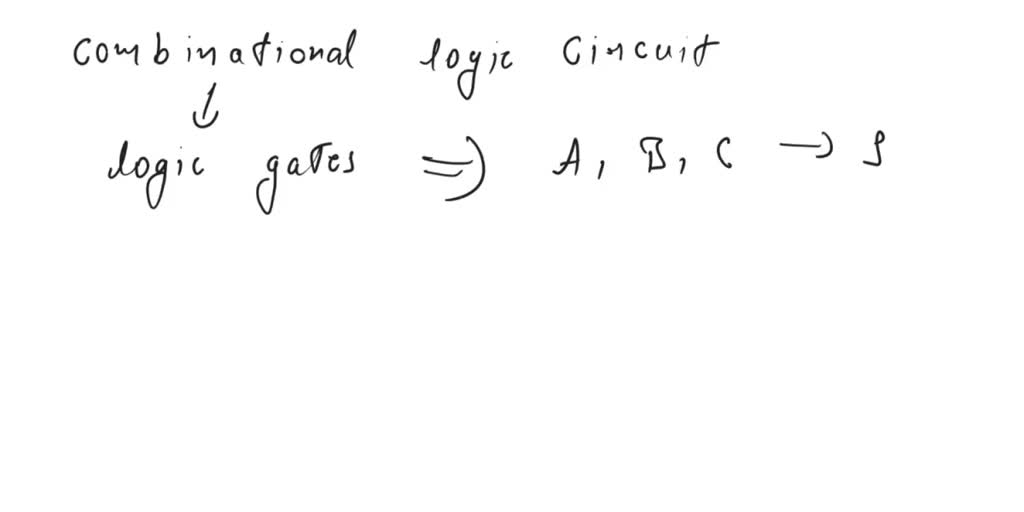 Combinational logic Circuit
↓
logic gates ⇒ A, B, C → S